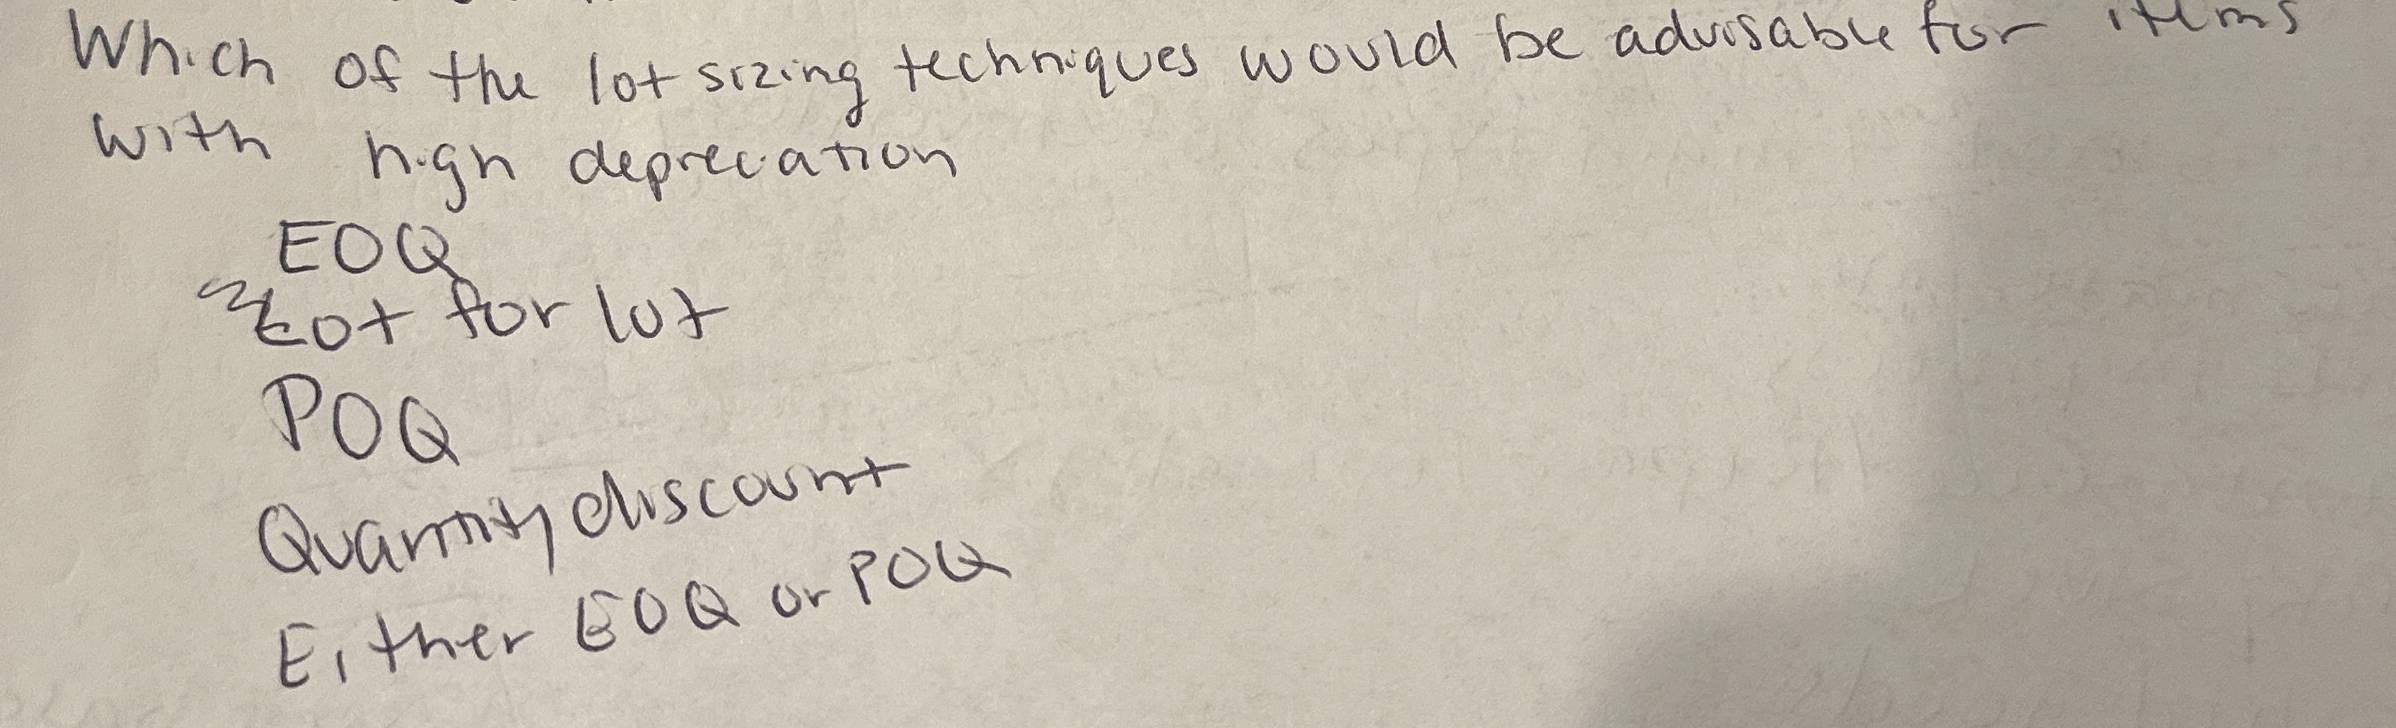 Which of the lot sizing techniques would be advisable for items
with high depreciation
EOQ
Lot for lot
POQ
Quantity discount
Either EOQ or POQ